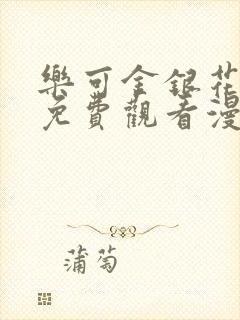 樂可金銀花
免費觀看漫
蒲萄